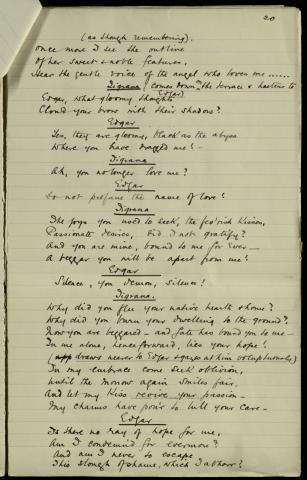 20
(as though remembering).
Once more I see the outline
of her sweet & noble features,
Hear the gentle voice of the angel who loves me ......
Tigrana (comes down the terrace & hastens to Edgar)
Edgar, what gloomy thoughts
Cloud your brow with their shadow?
Edgar
Yes, they are gloomy, black as the abyss
Where you have dragged me! -
Tigrana
Ah, you no longer love me?
Edgar
Do not profane the name of love!
Tigrana
The joys you used to seek, the fev'rish kisses,
Passionate desires, did I not gratify?
And you are mine, bound to me for ever -
A beggar you will be apart from me!
Edgar
Silence, you demon, silence!
Tigrana.
Why did you flee your native hearth & home?
Why did you burn your dwelling to the ground?
Now you are beggared - and fate has bound you to me -
In me alone, henceforward, lies your hope!
(draws nearer to Edgar & gazes at him voluptuously)
In my embrace come seek oblivion,
Until the morrow again smiles fair,
And let my kiss revive your passion -
My charms have pow'r to lull your care -
Edgar
Is there no ray of hope for me,
Am I condemn'd for evermore?
And am I never to escape
This slough of shame, which I abhor?